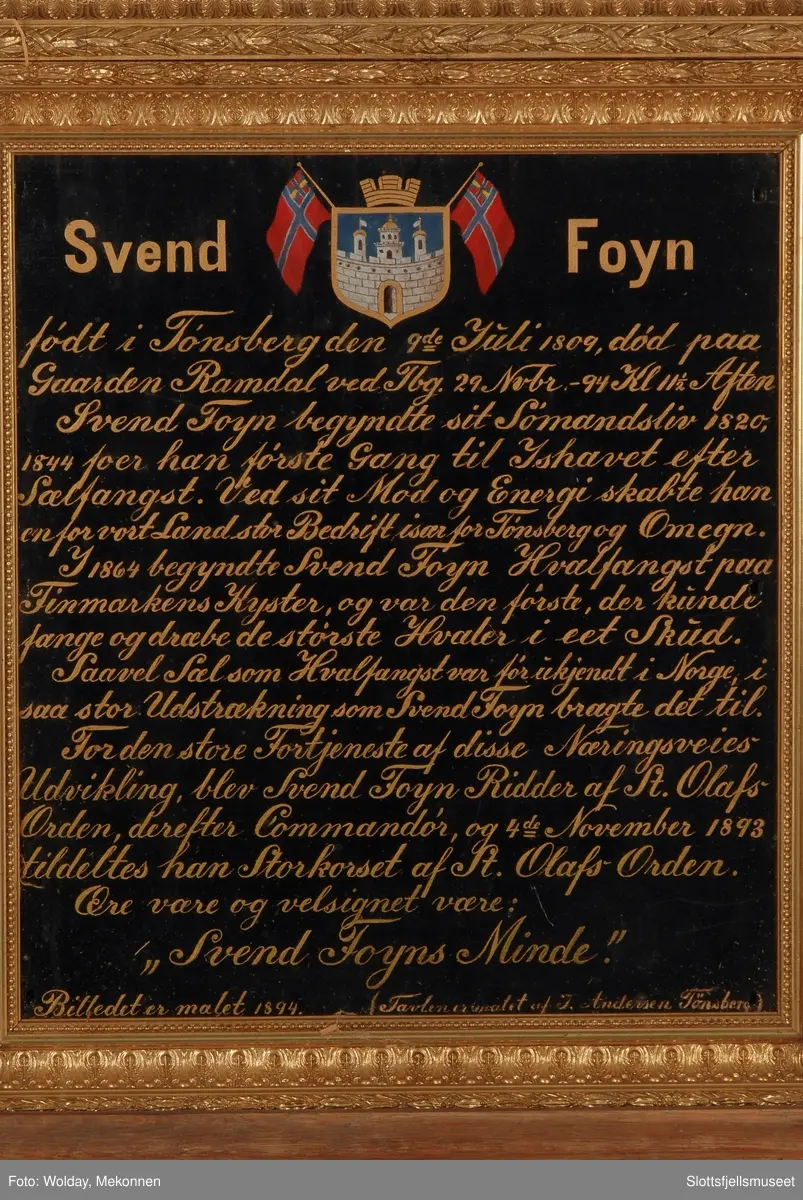 Svend Foyn
födt i Tönsberg den 9de Juli 1809, död paa
Gaarden Ramdal ved Tbg. 29 Nobr. -94 Kl 11½ Aften
Svend Foyn begyndte sit Sömandsliv 1820,
1844 foer han förste Gang til Ishavet efter
Sælfangst. Ved sit Mod og Energi skabte han
en for vort Land stor Bedrift især for Tönsberg og Omegn.
I 1864 begyndte Svend Foyn Hvalfangst paa
Finmarkens Kyster, og var den förste, der kunde
fange og dræbe de störste Hvaler i eet Skud.
Saavel Sæl som Hvalfangst var för ukjendt i Norge, i
saa stor Udstrækning som Svend Foyn bragte det til.
For den store Fortjeneste af disse Næringsveies
Udvikling, blev Svend Foyn Ridder af St. Olafs
Orden, derefter Commandör, og 4de November 1893
tildeltes han Storkorset af St. Olafs Orden.
Ære være og velsignet være:
„Svend Foyns Minde."
Billedet er malet 1894. (Tavlen er malet af J. Andersen Tönsberg)
Foto: Wolday, Mekonnen Slottsfjellsmuseet